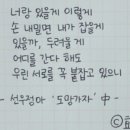 너랑 있을게 이렇게
손 내밀면 내가 잡을게
있을까, 두려울 게
어디를 간다 해도
우린 서로를 꼭 붙잡고 있으니
- 선우정아 '도망가자' 中 -